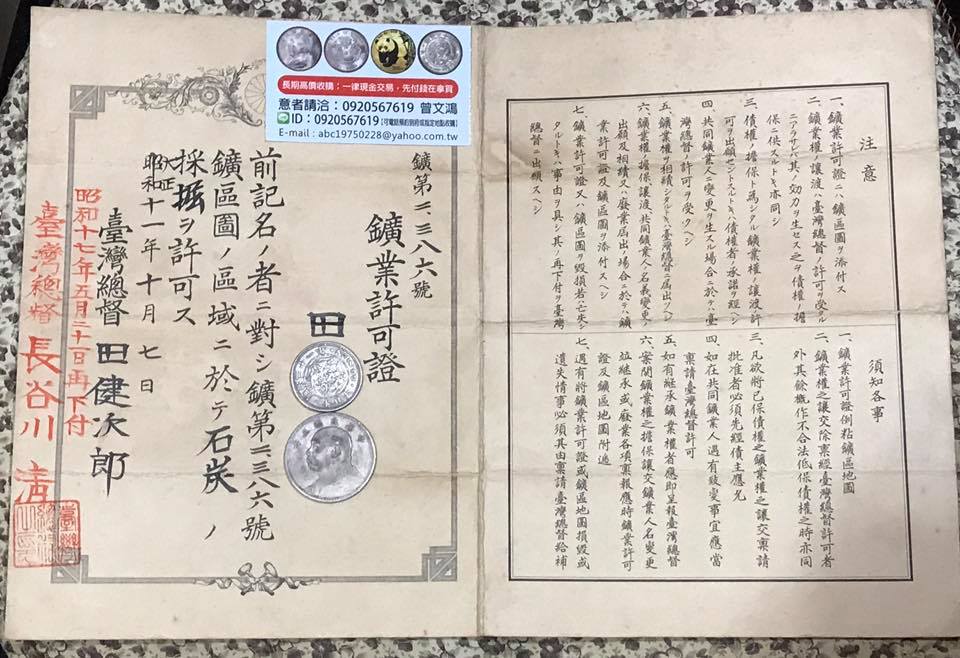 長期高價收購：一律現金交易，先付錢在拿貨
意者請洽：0920567619 曾文鴻
ID：0920567619【可電話預約到府或指定地點收購】
E-mail：abc19750228@yahoo.com.tw
注意
一、鑛業許可證ニハ鑛區圖ヲ添付ス
二、鑛業權ノ讓渡ハ臺灣總督ノ許可ヲ受クル
ニアラサレハ其ノ効力ヲ生セス之ヲ債權ノ擔
保ニ供スルトキ亦同シ
三、債權ノ擔保ト爲シタル鑛業權讓渡ノ許
可ヲ出願セントスルトキハ債權者ノ承諾ヲ經ヘシ
四、共同鑛業人ニ變更ヲ生スル場合ニ於テハ臺
灣總督ノ許可ヲ受クヘシ
五、鑛業權ヲ相續シタルトキハ臺灣總督ニ屆出ツヘシ
六、鑛業權ノ擔保讓渡、共同鑛業人名義變更ノ
出願及相續又ハ廢業屆出ノ場合ニ於テハ鑛
業許可證及鑛區圖ヲ添付スヘシ
七、鑛業許可證又ハ鑛區圖ヲ毀損若ハ亡失シ
タルトキハ事由ヲ具シ其ノ再下付ヲ臺灣
總督ニ出願スヘシ
須知各事
一、鑛業許可證例點鑛區地圖
二、鑛業權之讓交除稟經臺灣總督許可者
外其餘概作不合法低保債權之時亦同
三、凡欲將已保債權之鑛業權之讓交稟請
批准者必須先經債主應允
四、如在共同鑛業人遇有致變事宜應當
稟請臺灣總督許可
五、如有繼承鑛業權者應即呈報臺灣總督
六、案關鑛業權之擔保讓交鑛業人名變更
竝繼承或廢業各項稟報應時鑛業許可
證及鑛區地圖附遞
七、遇有將鑛業許可證或鑛區地圖損毀或
遺失情事必須具由稟請臺灣總督給補
鑛第二、三八六號
鑛業許可證
田
前記名ノ者ニ對シ鑛第二、三八六號
鑛區圖ノ區域ニ於テ石炭ノ
採掘ヲ許可ス
昭和十一年十月七日
臺灣總督 田健次郎
昭和十七年五月二十一日再下付
臺灣總督 長谷川 清